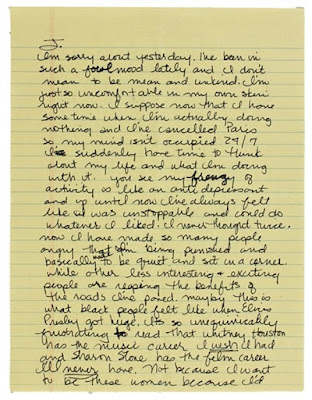 J.
I'm sorry about yesterday. I've been in
such a foul mood lately and I don't
mean to be mean and unkind. I'm
just so uncomfortable in my own skin
right now. I suppose now that I have
some time when I'm actually doing
nothing and I've cancelled Paris
so, my mind isn't occupied 24/7
I suddenly have time to think
about my life and what I'm doing
with it. you see my frenzy of
activity is like an anti depressant
and up until now I've always felt
like I was unstoppable and could do
whatever I liked. I never thought twice.
now I have made so many people
angry that I'm being punished and
basically to be quiet and sit in a corner.
while other less interesting & exciting
people are reaping the benefits of
the roads I've paved. maybe this is
what black people felt like when Elvis
Presley got huge. It's so unequivicably
frustrating to read that whitney Houston
has the music career I wish I had
and Sharon Stone has the film career
I'll never have. Not because I want
to be these women because I'd